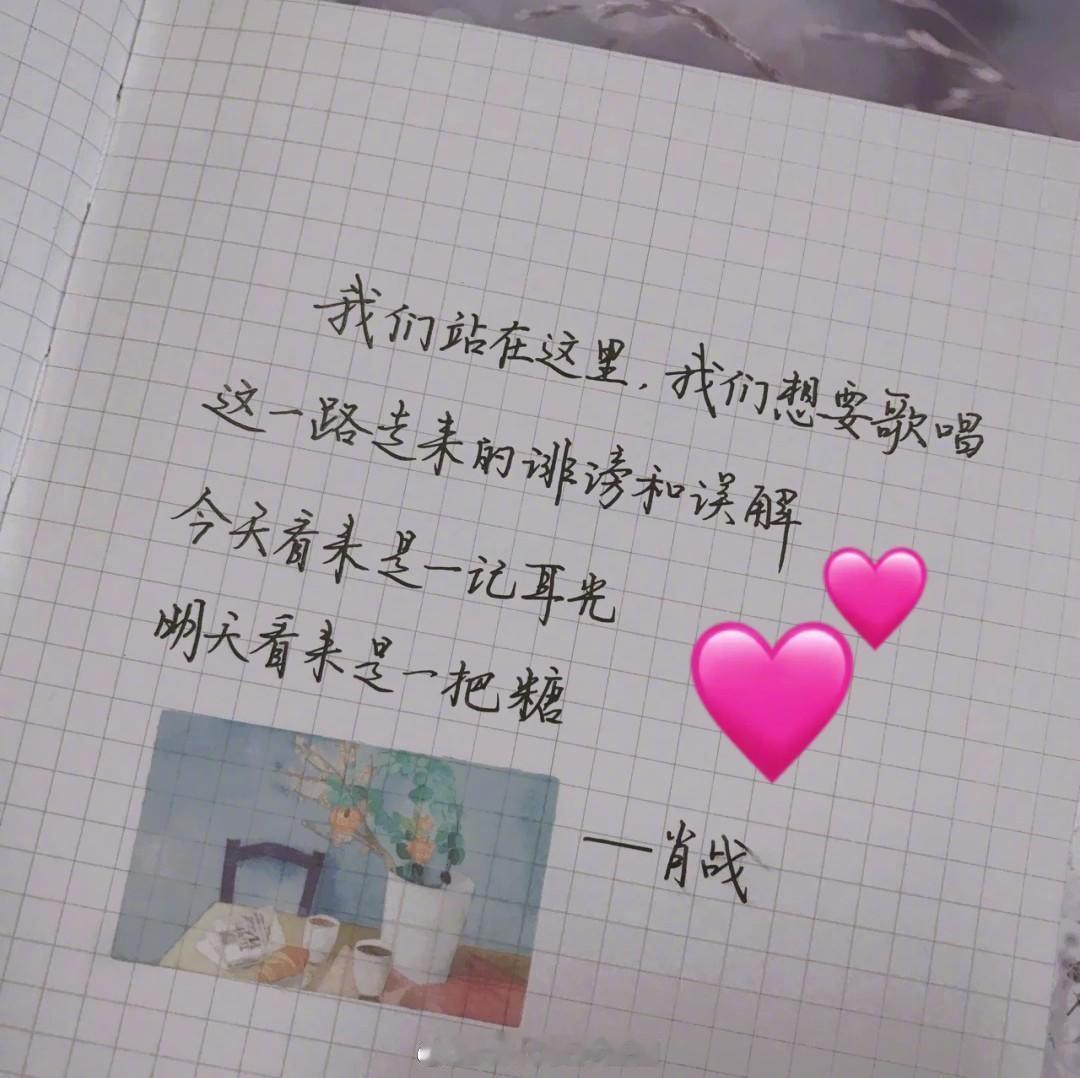 我们站在这里，我们想要歌唱
这一路走来的诽谤和误解
今天看来是一记耳光
明天看来是一把糖
——肖战